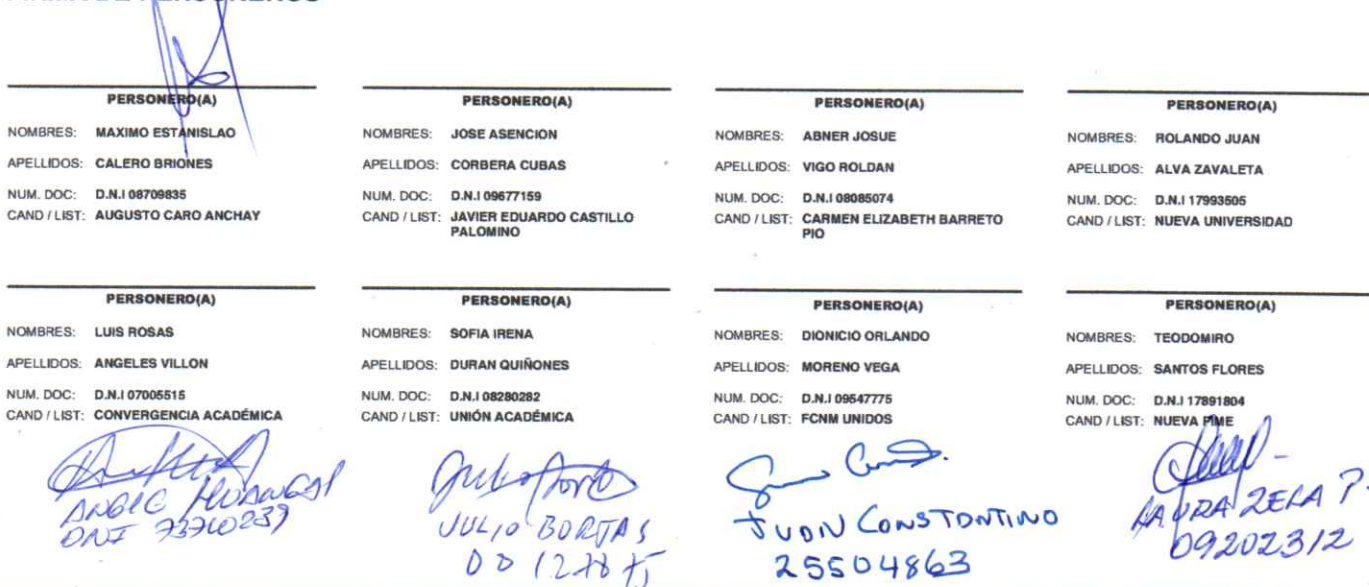 PERSONERO(A)
NOMBRES: MAXIMO ESTANISLAO
APELLIDOS: CALERO BRIONES
NUM. DOC: D.N.I 08709835
CAND / LIST: AUGUSTO CARO ANCHAY
PERSONERO(A)
NOMBRES: JOSE ASENCION
APELLIDOS: CORBERA CUBAS
NUM. DOC: D.N.I 09677159
CAND / LIST: JAVIER EDUARDO CASTILLO
PALOMINO
PERSONERO(A)
NOMBRES: ABNER JOSUE
APELLIDOS: VIGO ROLDAN
NUM. DOC: D.N.I 08085074
CAND / LIST: CARMEN ELIZABETH BARRETO
PIO
PERSONERO(A)
NOMBRES: ROLANDO JUAN
APELLIDOS: ALVA ZAVALETA
NUM. DOC: D.N.I 17993505
CAND / LIST: NUEVA UNIVERSIDAD
PERSONERO(A)
NOMBRES: LUIS ROSAS
APELLIDOS: ANGELES VILLON
NUM. DOC: D.N.I 07005515
CAND / LIST: CONVERGENCIA ACADÉMICA
PERSONERO(A)
NOMBRES: SOFIA IRENA
APELLIDOS: DURAN QUIÑONES
NUM. DOC: D.N.I 08280282
CAND / LIST: UNIÓN ACADÉMICA
PERSONERO(A)
NOMBRES: DIONICIO ORLANDO
APELLIDOS: MORENO VEGA
NUM. DOC: D.N.I 09547775
CAND / LIST: FCNM UNIDOS
PERSONERO(A)
NOMBRES: TEODOMIRO
APELLIDOS: SANTOS FLORES
NUM. DOC: D.N.I 17891804
CAND / LIST: NUEVA FIME
ANGIE
DNI
JULIO BORJAS
JUAN CONSTANTINO
25504863
LAURA ZELA P.
09202312